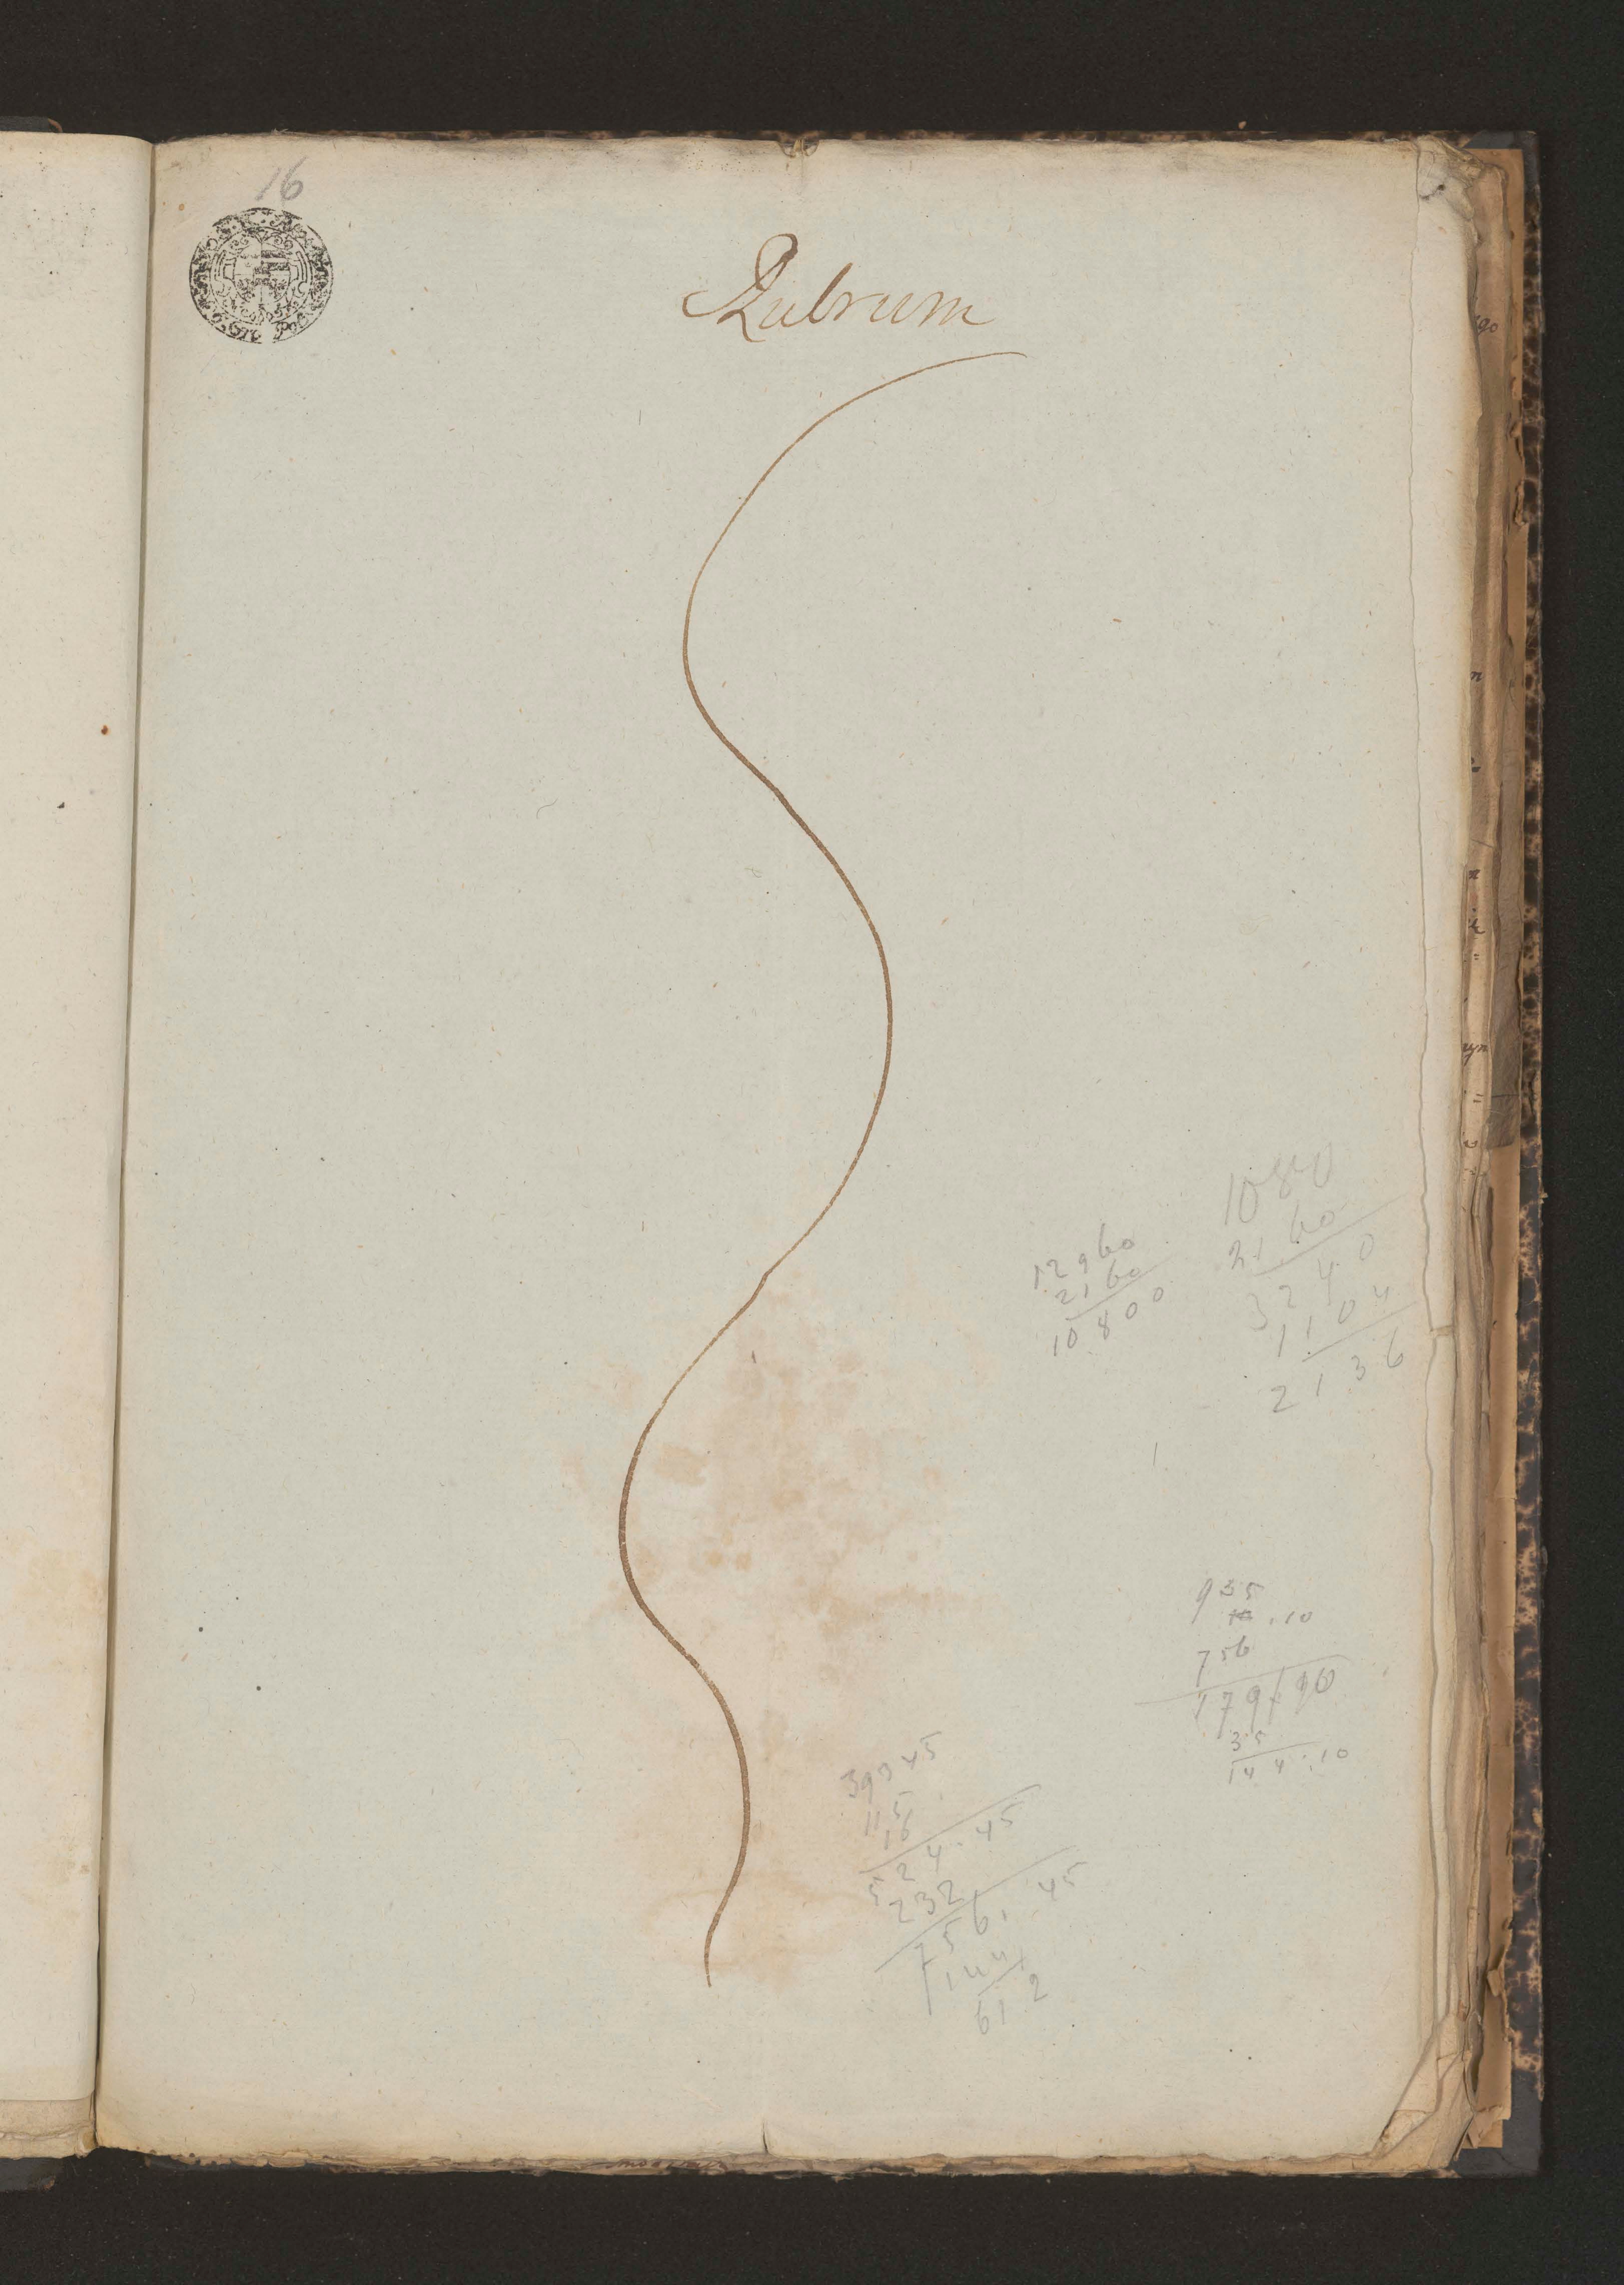 16
Rubrum
12960
2160
10800
10800
2160
3240
1104
2136
935
.10
756
179/10
35
144.10
393 45
115
16
524.45
232
756. 45
144
612